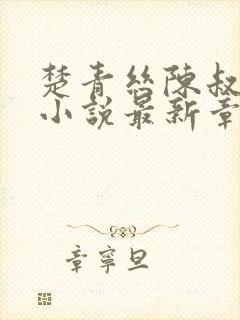 楚青絲陳叔
小說最新章
章寧旦